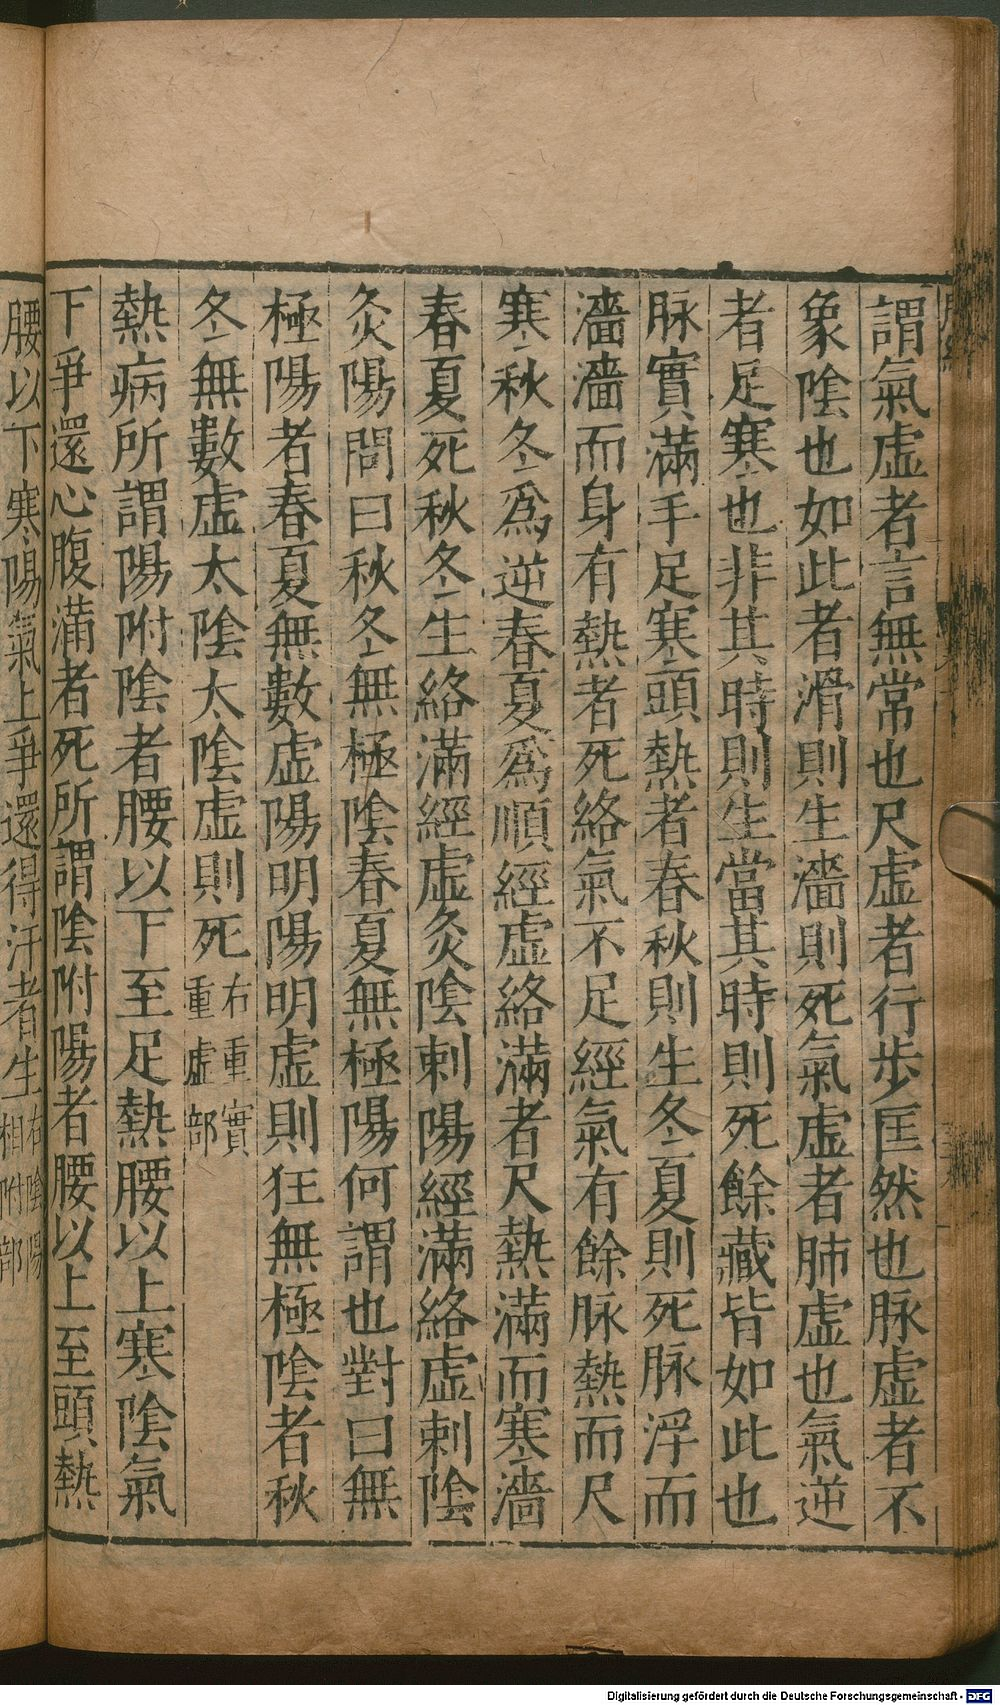 謂氣虛者言無常也尺虛者行步匡然也脉虛者不
象陰也如此者滑則生濇則死氣虛者肺虛也氣逆
者足寒也非其時則生當其時則死餘藏皆如此也
脉實滿手足寒頭熱者春秋則生冬夏則死脉浮而
濇濇而身有熱者死絡氣不足經氣有餘脉熱而尺
寒秋冬爲逆春夏爲順經虛絡滿者尺熱滿而寒濇
春夏死秋冬生絡滿經虛灸陰刺陽經滿絡虛刺陰
灸陽問曰秋冬無極陰春夏無極陽何謂也對曰無
極陽者春夏無數虛陽明陽明虛則狂無極陰者秋
冬無數虛太陰太陰虛則死右重實
重虛部
熱病所謂陽附陰者腰以下至足熱腰以上寒陰氣
下爭還心腹滿者死所謂陰附陽者腰以上至頭熱
腰以下寒陽氣上爭還得汗者生右陰陽
相附部
Digitalisierung gefördert durch die Deutsche Forschungsgemeinschaft - DFG